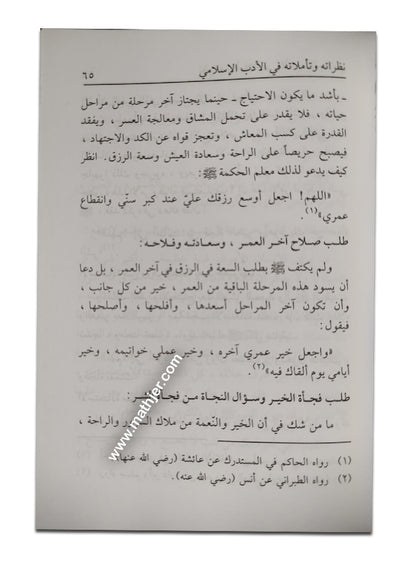 نظراته وتأملاته في الأدب الإسلامي
٦٥
ـ بأشد ما يكون الاحتياج ـ حينما يجتاز آخر مرحلة من مراحل
حياته ، فلا يقدر على تحمل المشاق ومعالجة العسر ، ويفقد
القدرة على كسب المعاش ، وتعجز قواه عن الكد والاجتهاد ،
فيصبح حريصاً على الراحة وسعادة العيش وسعة الرزق. انظر
كيف يدعو لذلك معلم الحكمة ﷺ:
«اللهم! اجعل أوسع رزقك عليّ عند كبر سنّي وانقطاع
عمري»(١).
طلب صلاح آخر العمر ، وسعادته وفلاحه:
ولم يكتف ﷺ بطلب السعة في الرزق في آخر العمر ، بل دعا
أن يسود هذه المرحلة الباقية من العمر ، خير من كل جانب ،
وأن تكون آخر المراحل أسعدها ، وأفلحها ، وأصلحها ،
فيقول:
«واجعل خير عمري آخره ، وخير عملي خواتيمه ، وخير
أيامي يوم ألقاك فيه»(٢).
طلب فجأة الخير وسؤال النجاة من فجأة :
ما من شك في أن الخير والنّعمة من ملاك والراحة ،
(١) رواه الحاكم في المستدرك عن عائشة (رضي الله عنها).
(٢) رواه الطبراني عن أنس (رضي الله عنه).
www.mathjer.com